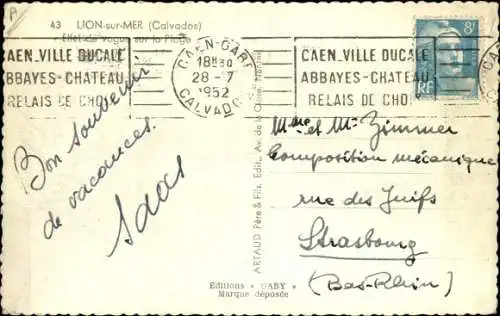 A
43 LION-sur-MER (Calvados)
Effet de vague sur la Plage
CAEN_VILLE DUCALE
ABBAYES-CHATEAU
RELAIS DE CHOI
CAEN-GARE
18H30
28-7
1952
CALVADOS
CAEN_VILLE DUCALE
ABBAYES-CHATEAU
RELAIS DE CHOI
8F
RF
Bon souvenir
de vacances.
ARTAUD Père & Fils, Edit., Av. de la
Mme et Mr Zimmer
Composition mécanique
rue des Juifs
Strasbourg
(Bas-Rhin)
Editions "GABY"
Marque déposée